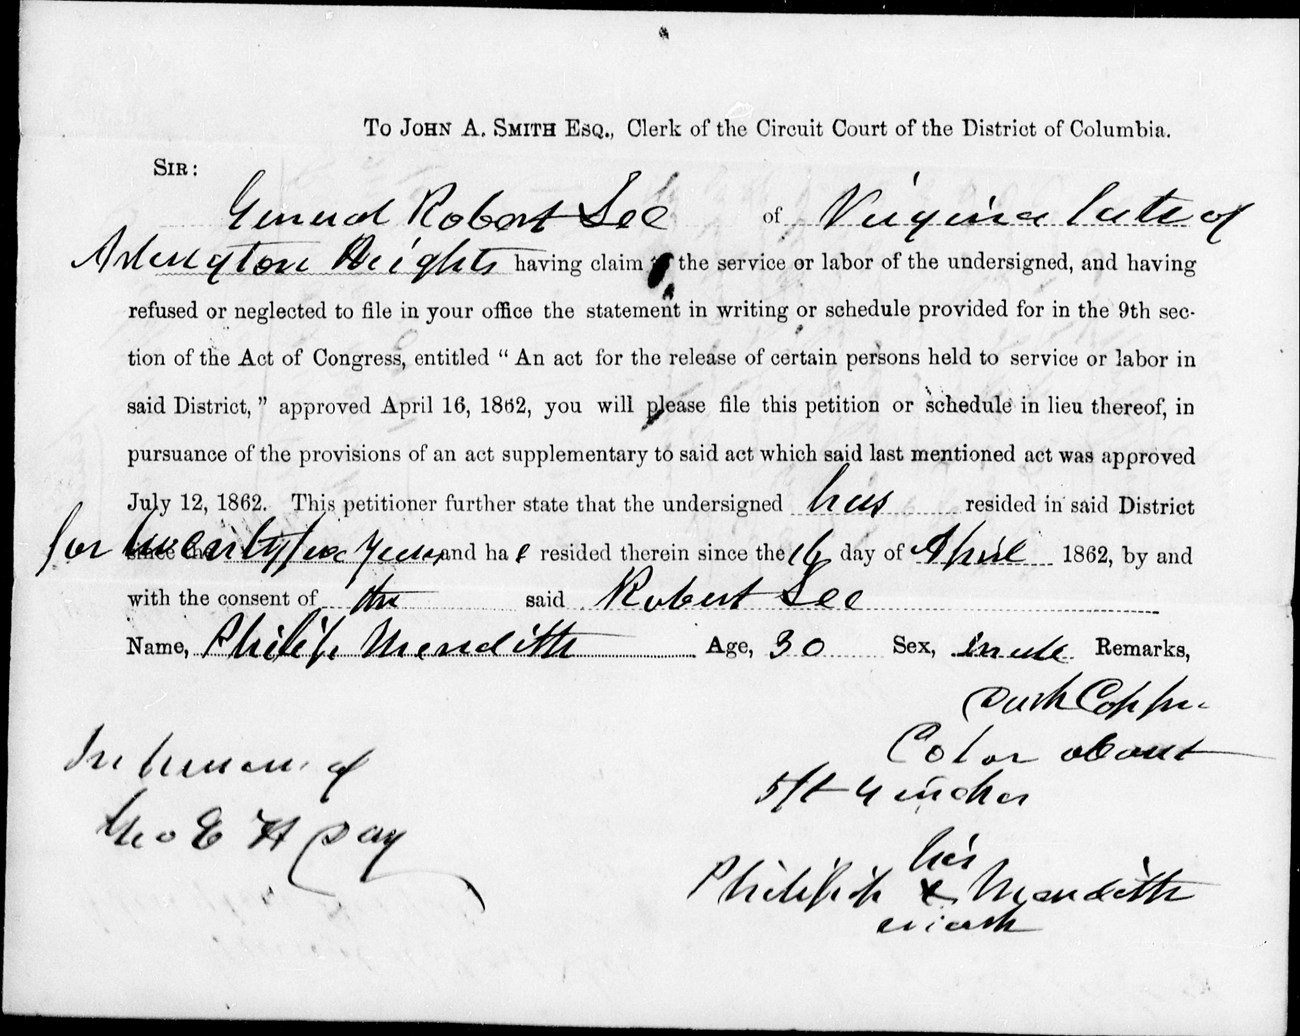 To John A. Smith Esq., Clerk of the Circuit Court of the District of Columbia.
Sir:
General Robert Lee of Virginia late of
Arlington Heights having claim to the service or labor of the undersigned, and having
refused or neglected to file in your office the statement in writing or schedule provided for in the 9th sec-
tion of the Act of Congress, entitled "An act for the release of certain persons held to service or labor in
said District," approved April 16, 1862, you will please file this petition or schedule in lieu thereof, in
pursuance of the provisions of an act supplementary to said act which said last mentioned act was approved
July 12, 1862. This petitioner further state that the undersigned has resided in said District
for Years and has resided therein since the 16 day of April 1862, by and
with the consent of the said Robert Lee
Name, Philip Meredith Age, 30 Sex, male Remarks,
Dark Copper
Color about
5 ft 4 inches
In presence of
Geo E H Day
his
Philip x Meredith
mark